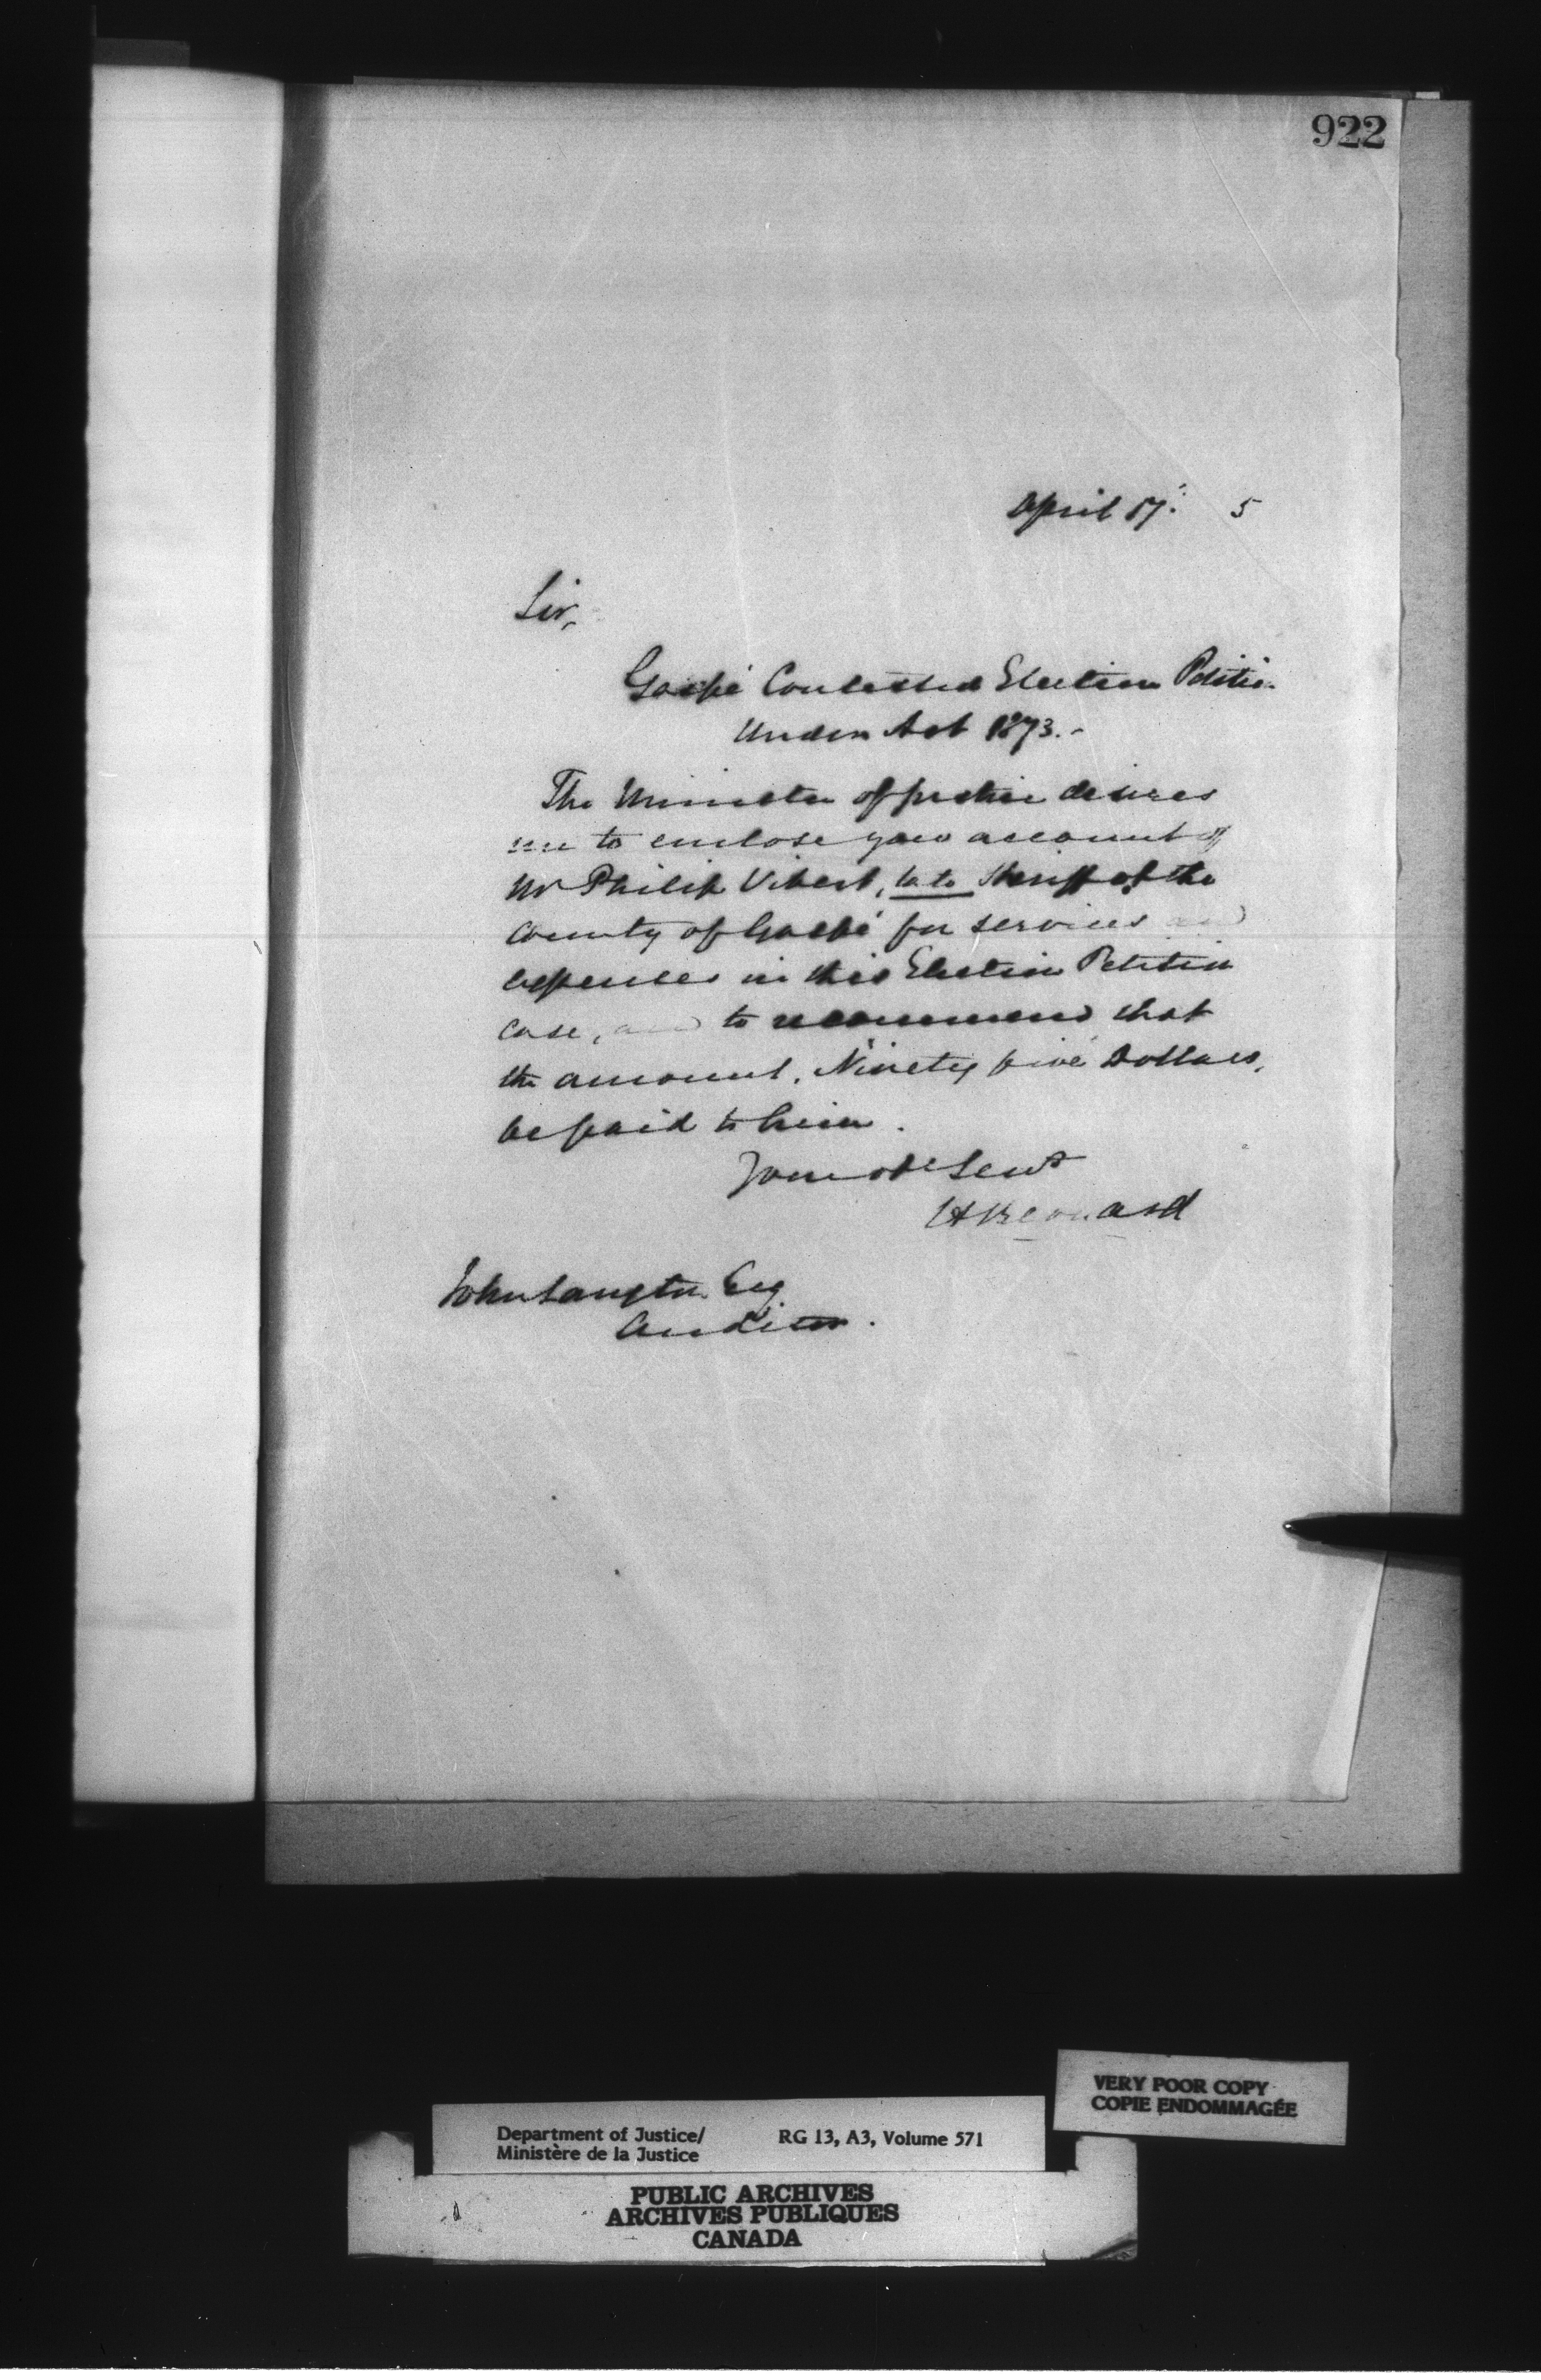 922
April 17. 5
Sir,
Gaspé Contested Election Petitio.
Under Act 1873.-
The Minister of Justice desires
me to enclose you account of
Mr Philip Vibert, late Sheriff of the
County of Gaspé for services and
expenses in this Election Petition
case, and to recommend that
the amount, Ninety five Dollars,
be paid to him.
Your obt Servt
H Bernard
John Langton Esq
Auditor.
VERY POOR COPY
COPIE ENDOMMAGÉE
Department of Justice/ RG 13, A3, Volume 571
Ministère de la Justice
PUBLIC ARCHIVES
ARCHIVES PUBLIQUES
CANADA